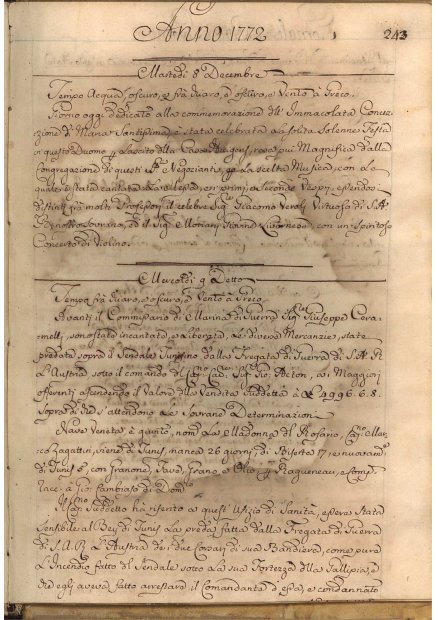 Anno 1772
243
Martedì 8 Decembre
Tempo Acqua, oscuro, e frà Suaro, e oscuro, e Vento à Greco.
Giorno oggi dedicato alla commemorazione dll' Immacolata Conce-
zione di Maria Santissima è stata celebrata la solita Solenne Festa
in questo Duomo p Lascito dlla Casa Huigens, resa più Magnifica dalla
Congregazione di questi Negozianti, p la scelta Musica, con la
quale è stata cantata La Messa, e primi, e Secondi Vespri, essendosi
distinti frà molti Professori il celebre Sig. Giacomo Veroli Virtuoso di S. A.
Sovrano, ed il Sig. Giovane Livornese con un Spiritoso
Concerto di Violino.
Mercoledì 9 Detto
Tempo frà Suaro, e oscuro, e Vento à Greco.
Avanti il Commissario di Marina di Guerra Sig. Giuseppe Cera-
melli, sono state incantate, e Liberate, Le diverse Mercanzie, state
predate sopra il Sendale Tunisino dalla Fregata di Guerra di S. A. R.
L'Austria sotto il comando del Sig. Acton, ai Maggiori
offerenti ascendendo il Valore dlla Vendita Suddetta à £ 9996. 6. 8.
Sopra di che s' attendono Le Sovrane Determinazioni.
Nave Veneta è quinto, nom. La Madonna dl Rosario, Cap. Mar-
co Ragattin, viene di Tunis, manca 26 giorni, di
di Tunis 6, con Granone, Fave, Grano, e Olio, p Ragueneau, e
à Gio:
Il Cap. Suddetto ha riferito a quest' Ufizio di Sanità, essere Stata
Sensibile al Bey di Tunis La preda fatta dalla Fregata di Guerra
di S. A. R. L'Austria de i due Corsari di sua Bandiera, come pure
L'Incendio fatto dl Sendale sotto La sua Fortezza dlla Gallipia, e
che egli aveva fatto arrestare il Comandante d'essa, e condannato